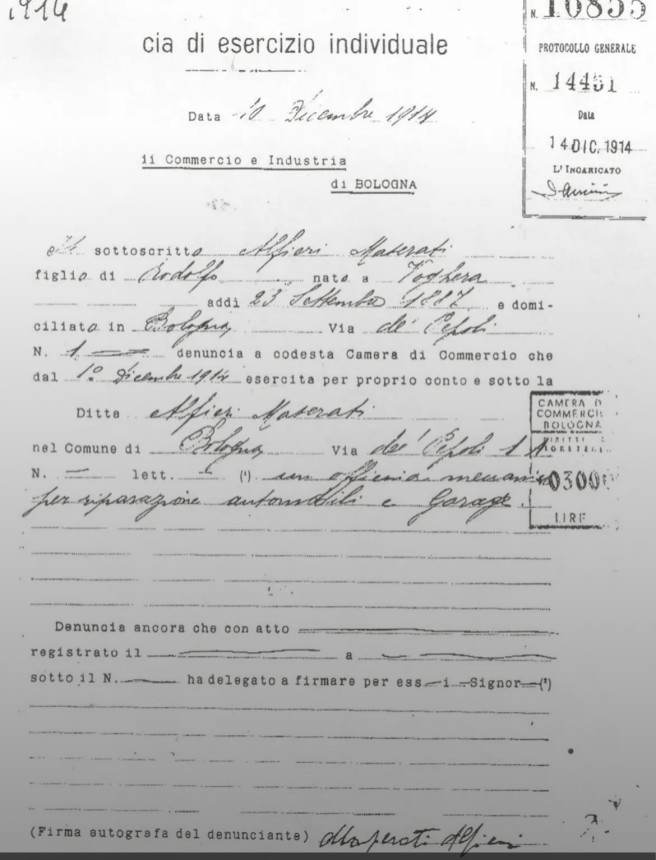 1914
N. 10855
cia di esercizio individuale
PROTOCOLLO GENERALE
N. 14451
Data
14 DIC. 1914
L'INCARICATO
Data 10 Dicembre 1914
di Commercio e Industria
di BOLOGNA
Il sottoscritto Alfieri Maserati
figlio di Rodolfo nato a Voghera
addì 23 Settembre 1887 e domi-
ciliato in Bologna Via de' Cepoli
N. 1 denuncia a codesta Camera di Commercio che
dal 1º Dicembre 1914 esercita per proprio conto e sotto la
Ditta Alfieri Maserati
nel Comune di Bologna Via de' Cepoli 1
N. — lett. — (') un officina meccanica
per riparazione automobili e Garage
CAMERA D
COMMERCIO
BOLOGNA
0300
LIRE
Denuncia ancora che con atto
registrato il a
sotto il N. ha delegato a firmare per ess i Signor (')
(Firma autografa del denunciante) Maserati Alfieri